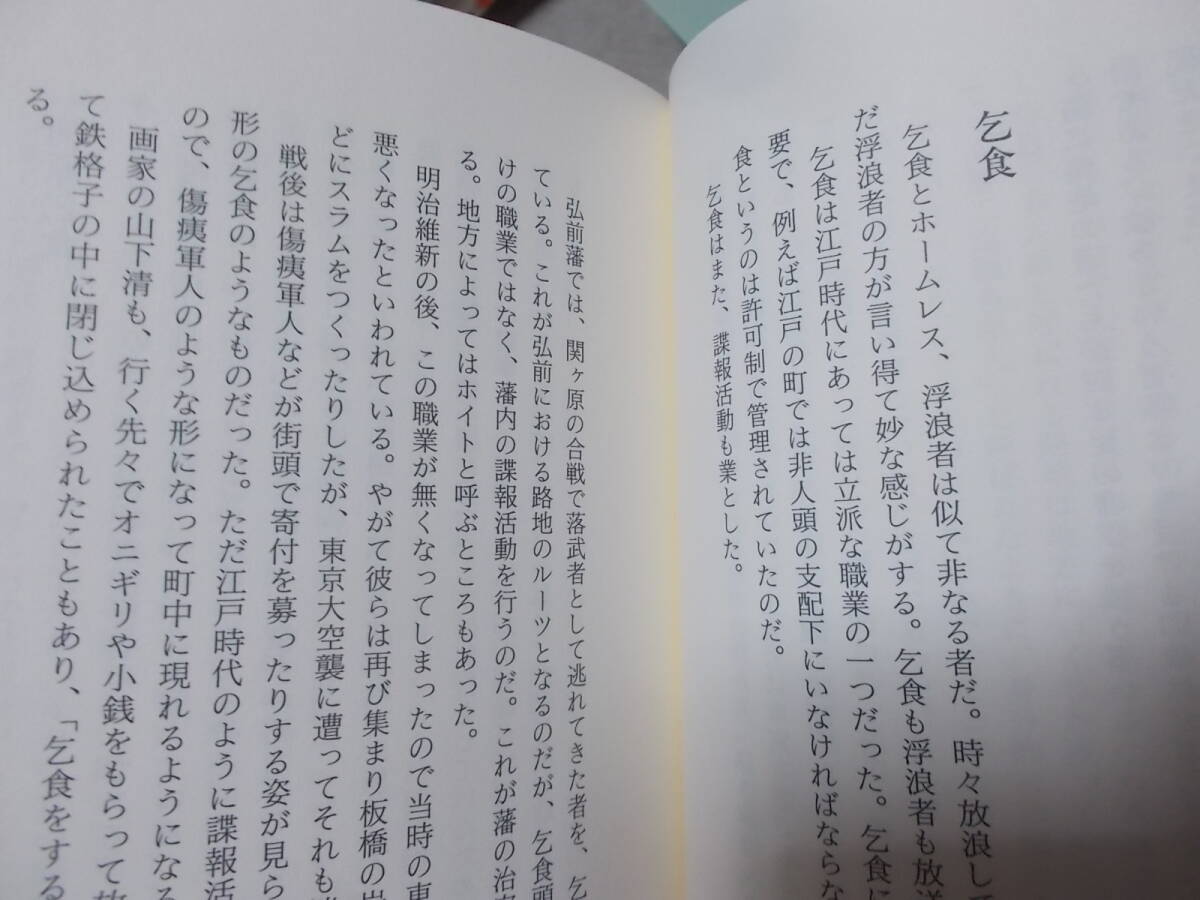 乞食
乞食とホームレス、浮浪者は似て非なる者だ。時々放浪して
だ浮浪者の方が言い得て妙な感じがする。乞食も浮浪者も放
乞食は江戸時代にあっては立派な職業の一つだった。乞食に
要で、例えば江戸の町では非人頭の支配下にいなければならな
食というのは許可制で管理されていたのだ。
乞食はまた、諜報活動も業とした。
弘前藩では、関ヶ原の合戦で落武者として逃れてきた者を、乞
ている。これが弘前における路地のルーツとなるのだが、乞食頭
けの職業ではなく、藩内の諜報活動を行うのだ。これが藩の治安
る。地方によってはホイトと呼ぶところもあった。
明治維新の後、この職業が無くなってしまったので当時の東
悪くなったといわれている。やがて彼らは再び集まり板橋の
どにスラムをつくったりしたが、東京大空襲に遭ってそれも
戦後は傷痍軍人などが街頭で寄付を募ったりする姿が見ら
形の乞食のようなものだった。ただ江戸時代のように諜報活
ので、傷痍軍人のような形になって町中に現れるようになる
画家の山下清も、行く先々でオニギリや小銭をもらって放
て鉄格子の中に閉じ込められたこともあり、「乞食をする
る。